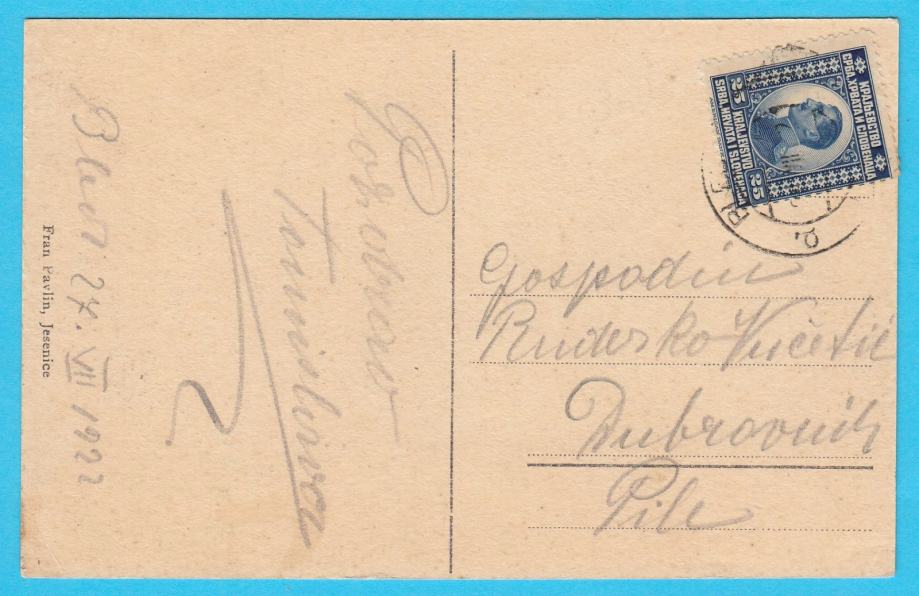 Bled 27. VII 1922
Pozdrav
Tomislava
Fran Pavlin, Jesenice
КРАЉЕВСТВО
СРБА, ХРВАТА И СЛОВЕНАЦА
25 25
KRALJEVSTVO
SRBA, HRVATA I SLOVENACA
BLE
Gospodin
Vučetić
Dubrovnik
Pile